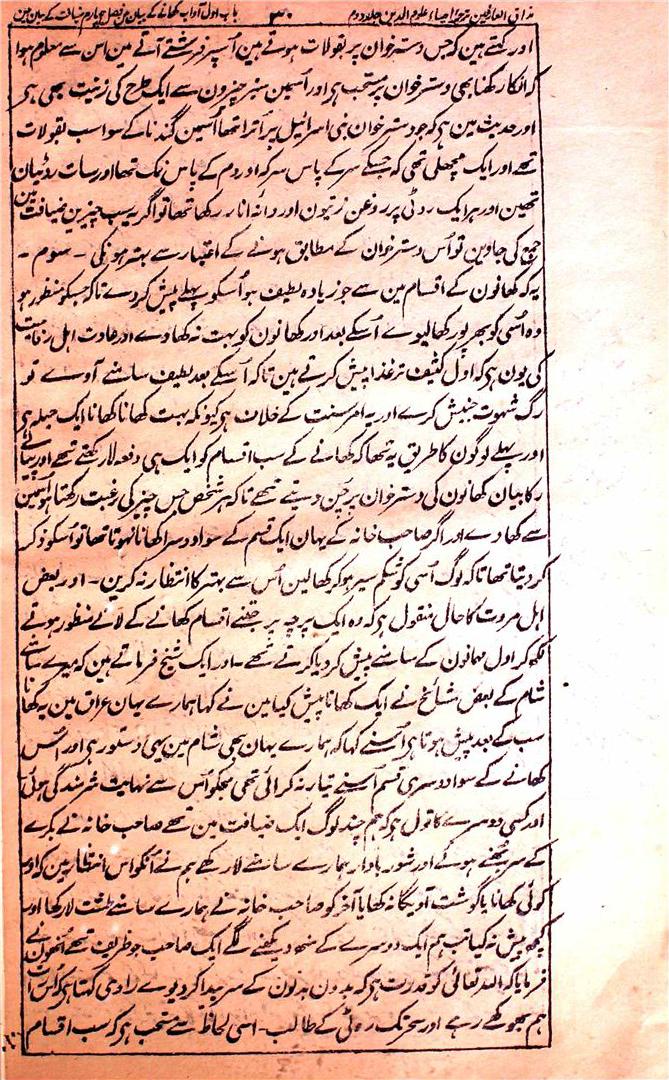 مذاق العارفین ترجمہ احیاء علوم الدین جلد دوم ۳۰ باب اول آداب کھانے کے بیان مین فصل چہارم ضیافت کے بیان مین
اور کہتے ہین کہ جس دسترخوان پر بقولات ہوتے ہین اُسپر فرشتے آتے ہین اس سے معلوم ہوا
کہ انکا رکھنا بھی دسترخوان پر مستحب ہی اور اسمین سبز چیزون سے ایک طرح کی زینت بھی ہی
اور حدیث مین ہی کہ جو دسترخوان بنی اسرائیل پر اُترا تھا اُسمین گندنا کے سوا سب بقولات
تھے اور ایک مچھلی تھی کہ جسکے سر کے پاس سرکہ اور دم کے پاس نمک تھا اور سات روٹیان
تھین اور ہر ایک روٹی پر روغن زیتون اور دانہ انار رکھا تھا تو اگر یہ سب چیزین ضیافت مین
جمع کی جاوین تو اُس دسترخوان کے مطابق ہونے کے اعتبار سے بہتر ہونگی ۔ سوم ۔
یہ کہ کھانون کے اقسام مین سے جو زیادہ لطیف ہو اُسکو پہلے پیش کردے تاکہ جسکو منظور ہو
وہ اُسی کو بھرپور کھالیوے اُسکے بعد اور کھانون کو بہت نہ کھاوے اور عادت اہل رفاہیت
کی یون ہی کہ اول کثیف تر غذا پیش کرتے ہین تاکہ اُسکے بعد لطیف سامنے آوے تو
رگ شہوت جنبش کرے اور یہ امر سنت کے خلاف ہی کیونکہ بہت کھانا کھانا ایک حیلہ ہی
اور پہلے لوگون کا طریق یہ تھا کہ کھانے کے سب اقسام کو ایک ہی دفعہ لا رکھتے تھے اور پیالے
رکابیان کھانون کی دسترخوان پر چُن دیتے تھے تاکہ ہر شخص جس چیز کی رغبت رکھتا ہو اُسمین
سے کھاوے اور اگر صاحب خانہ کے یہان ایک قسم کے سوا دوسرا کھانا نہوتا تھا تو اُسکو ذکر
کر دیتا تھا تاکہ لوگ اُسی کو شکم سیر ہوکر کھالین اُس سے بہتر کا انتظار نہ کرین ۔ اور بعض
اہل مروت کا حال منقول ہی کہ وہ ایک پرچہ پر جتنے اقسام کھانے کے لانے منظور ہوتے
لکھ کر اول مہمانون کے سامنے پیش کر دیا کرتے تھے ۔ اور ایک شیخ فرماتے ہین کہ میرے سامنے
شام کے بعض مشائخ نے ایک کھانا پیش کیا مین نے کہا ہمارے یہان عراق مین یہ کھانا
سب کے بعد پیش ہوتا ہی اُسنے کہا کہ ہمارے یہان بھی شام مین یہی دستور ہی اور اُس
کھانے کے سوا دوسری قسم اُسنے تیار نہ کرائی تھی مجکو اُس سے نہایت شرمندگی ہوئی
اور کسی دوسرے کا قول ہی کہ ہم چند لوگ ایک ضیافت مین تھے صاحب خانہ نے بکرے
کے سر بھُنے ہوئے اور شوربادار ہمارے سامنے لا رکھے ہم نے اُنکو اس انتظار مین کہ اور
کوئی کھانا یا گوشت آویگا نہ کھایا آخر کو صاحب خانہ نے ہمارے سامنے طشت لا رکھا اور
کچھ پیش نہ کیا تب ہم ایک دوسرے کے منھ دیکھنے لگے ایک صاحب جو ظریف تھے اُنھون نے
فرمایا کہ اللہ تعالی کو قدرت ہی کہ بدون بدنون کے سر پیدا کردیوے راوی کہتا ہی کہ اُس رات
ہم بھوکھے رہے اور سحر تک روٹی کے طالب ۔ اسی لحاظ سے مستحب ہی کہ سب اقسام